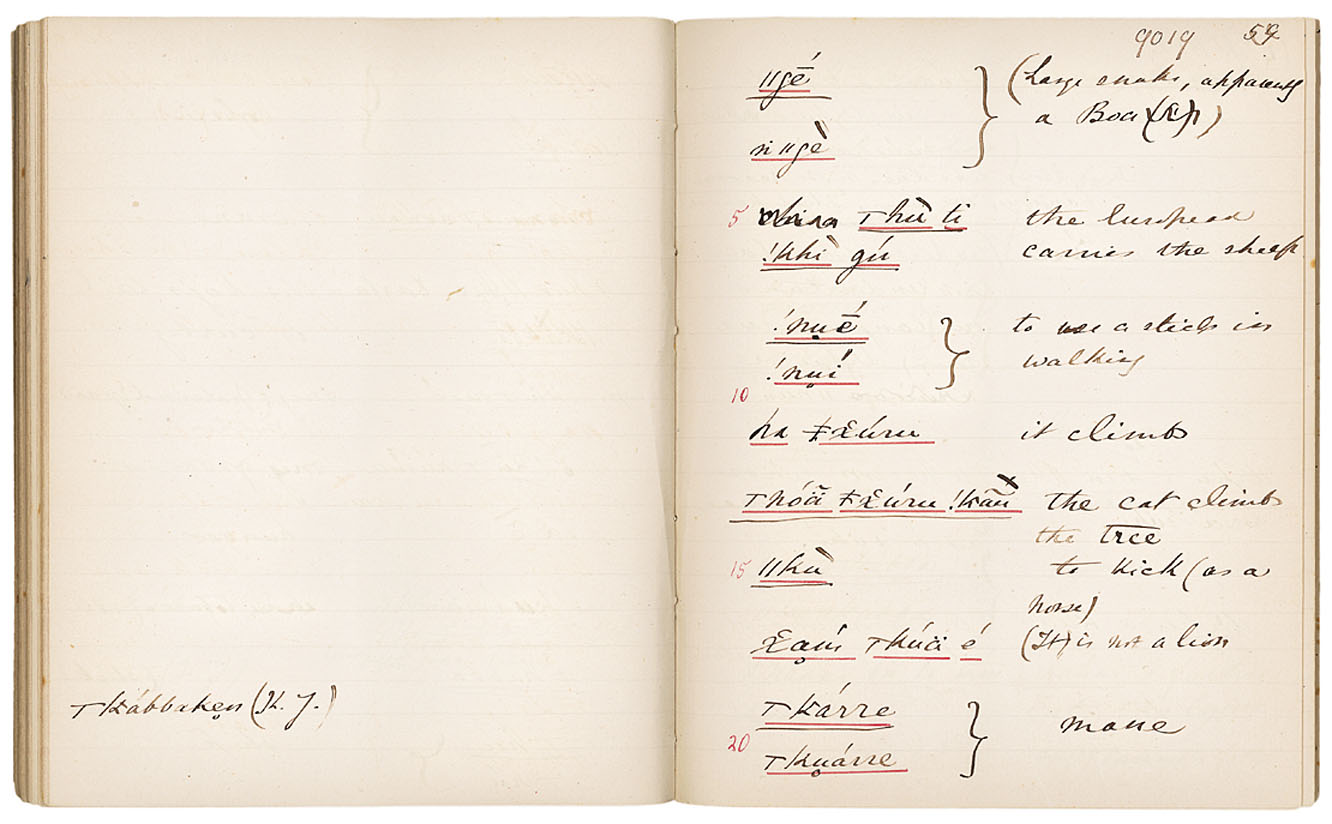 ⊤kábbaken (K. J.)
9019 59
ǁgé̄
n ǁgè
(Large snake, apparently
a Boa
5 ⊤hù ti
!khì gú
the European
carries the sheep
!nu̥é̄
!nu̥í
to use a stick in
walking
10
ha ǂχúru
it climbs
⊤hóã ǂχúru !kãù
the cat climbs
the tree
15 ǁkù
to kick (as a
horse)
χa̤ḿ ⊤kúä é
(It) is not a lion
⊤kárre
20 ⊤ku̥árre
mane